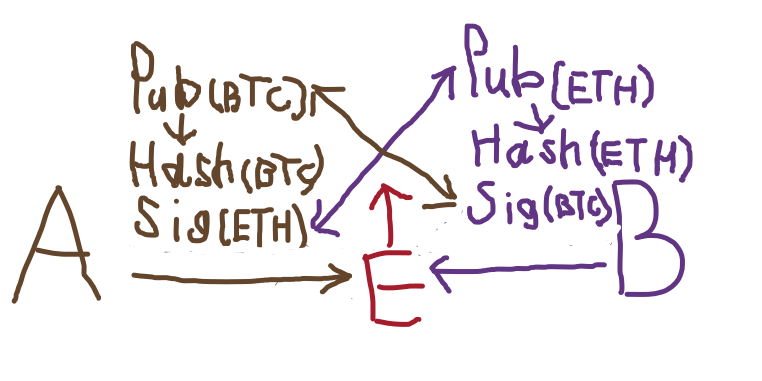 Pub(BTC)
Hash(BTC)
Sig(ETH)
A
Pub(ETH)
Hash(ETH)
Sig(BTC)
B
E